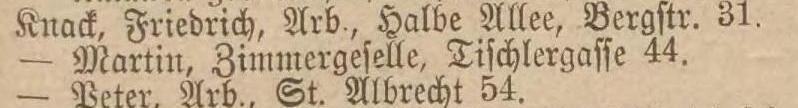 Knack, Friedrich, Arb., Halbe Allee, Bergstr. 31.
— Martin, Zimmergeselle, Tischlergasse 44.
— Peter, Arb., St. Albrecht 54.